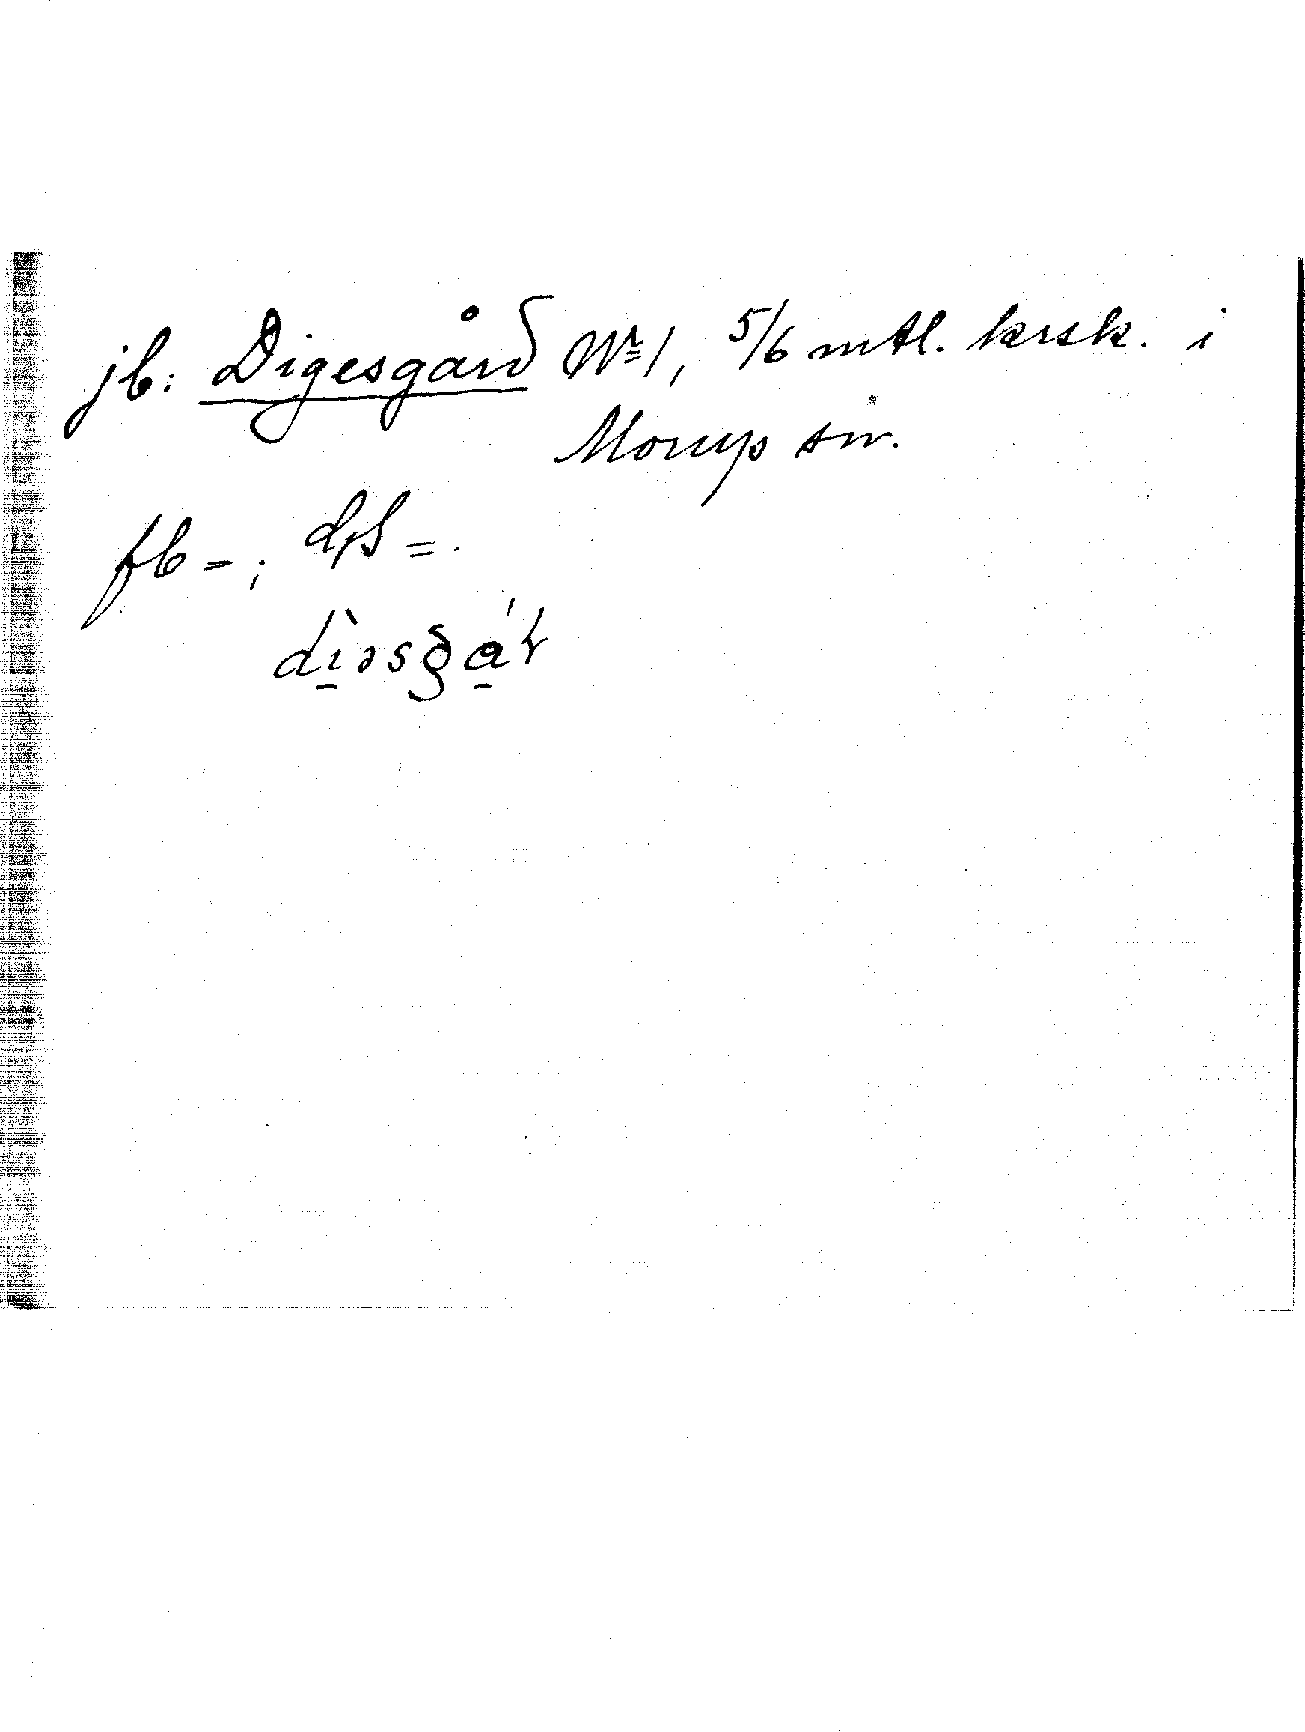 jb: Digesgård Nr 1, 5/6 mtl. krsk. i
Morup sn.
fb = ; dfs = .
dìəsgá'r